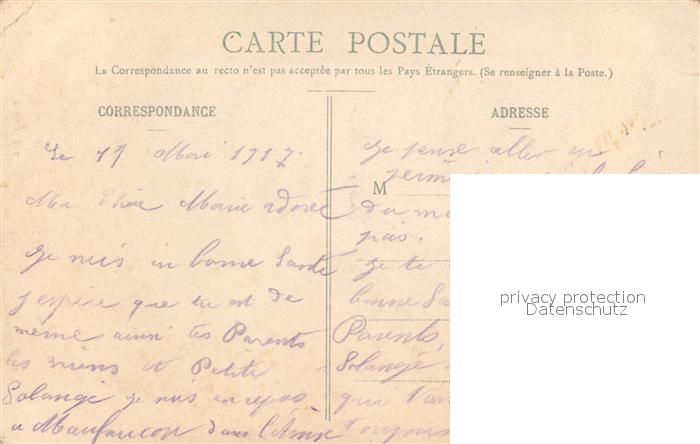 CARTE POSTALE
La Correspondance au recto n'est pas acceptée par tous les Pays Étrangers. (Se renseigner à la Poste.)
CORRESPONDANCE
Le 17 Mai 1917.
Ma Chère Marie adorée
Je suis en bonne Santé
j'espère que tu est de
même ainsi tes Parents
les miens et Petite
Solange je suis en repos
a Maufaucon dans l'Aisne
ADRESSE
Je pense aller en
M
du mo
pais.
Je te
bonne Sa
Parents,
Solange
qui t'
toujours
privacy protection
Datenschutz